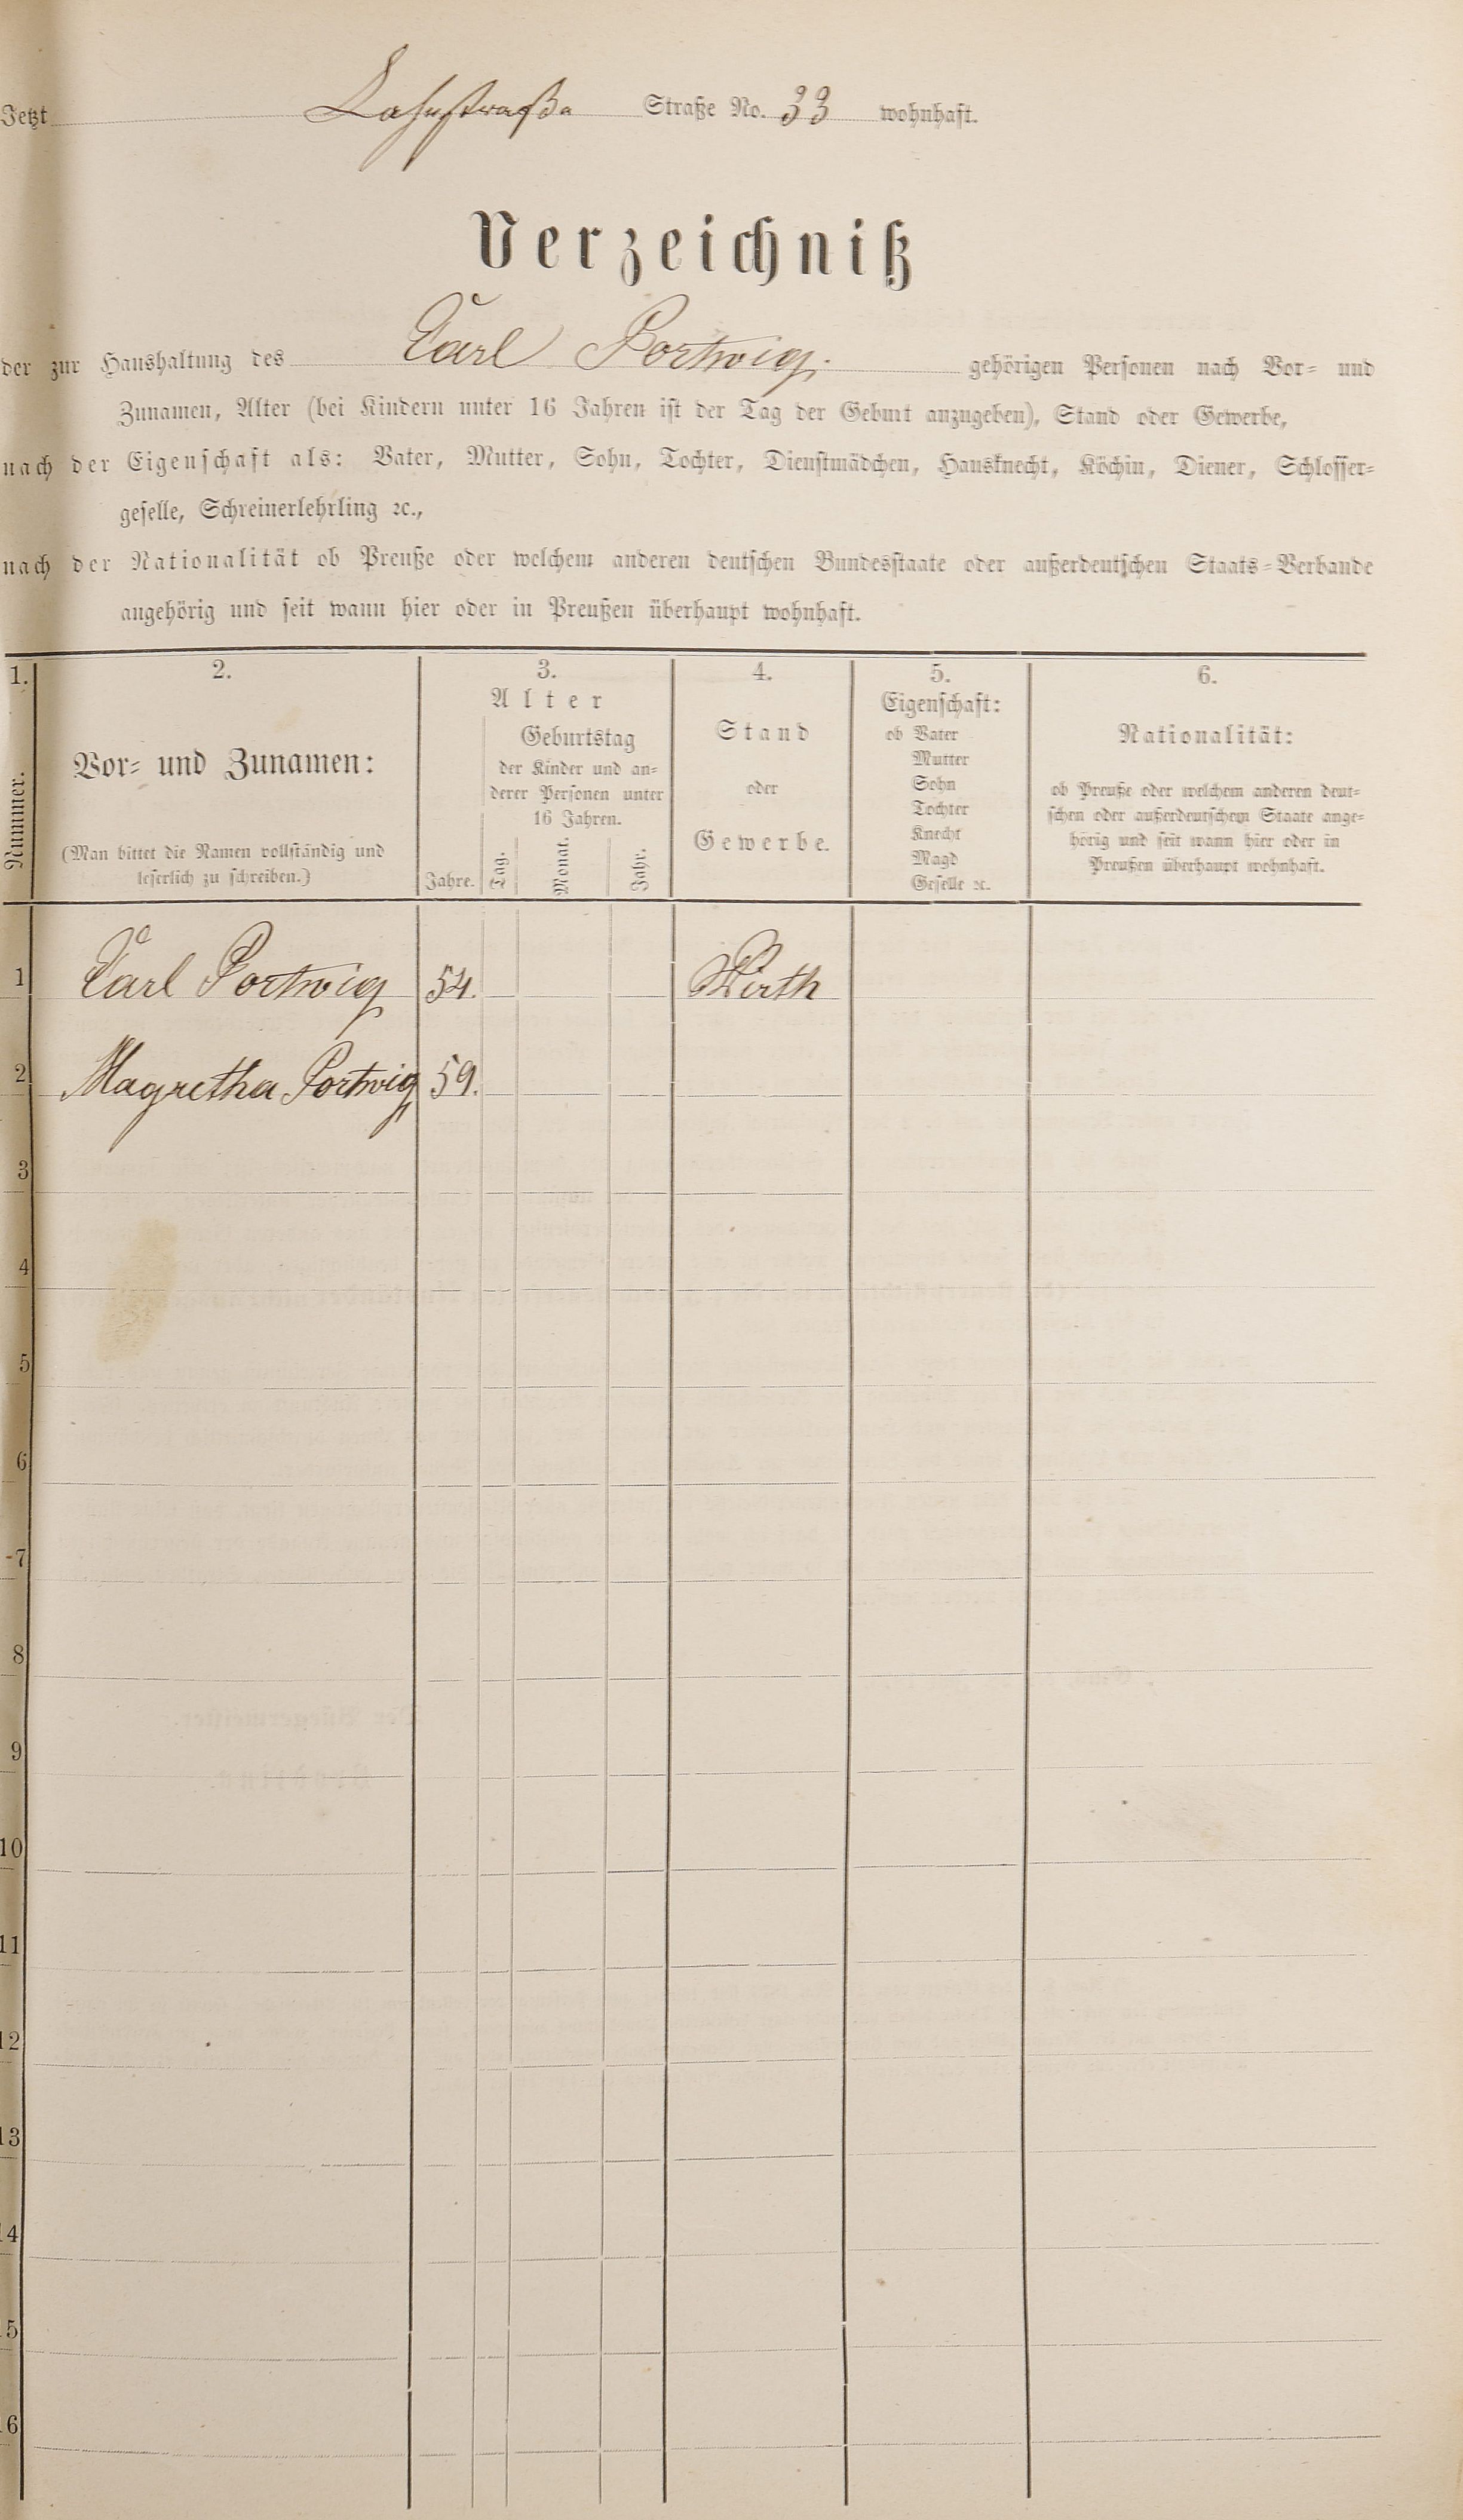 Jetzt Lahnstraße Straße No. 33 wohnhaft.
Verzeichniß
der zur Haushaltung des Carl Portwig. gehörigen Personen nach Vor- und
Zunamen, Alter (bei Kindern unter 16 Jahren ist der Tag der Geburt anzugeben), Stand oder Gewerbe,
nach der Eigenschaft als: Vater, Mutter, Sohn, Tochter, Dienstmädchen, Hausknecht, Köchin, Diener, Schlosser-
geselle, Schreinerlehrling ꝛc.,
nach der Nationalität ob Preuße oder welchem anderen deutschen Bundesstaate oder außerdeutschen Staats-Verbande
angehörig und seit wann hier oder in Preußen überhaupt wohnhaft.
1.
Nummer.
2.
Vor- und Zunamen:
(Man bittet die Namen vollständig und
leserlich zu schreiben.)
3.
Alter
Jahre.
Geburtstag
der Kinder und an-
derer Personen unter
16 Jahren.
Tag.
Monat.
Jahr.
4.
Stand
oder
Gewerbe.
5.
Eigenschaft:
ob Vater
Mutter
Sohn
Tochter
Knecht
Magd
Geselle ꝛc.
6.
Nationalität:
ob Preuße oder welchem anderen deut-
schen oder außerdeutschem Staate ange-
hörig und seit wann hier oder in
Preußen überhaupt wohnhaft.
1 Carl Portwig 54. Wirth
2 Magretha Portwig 59.
3
4
5
6
7
8
9
10
11
12
13
14
15
16